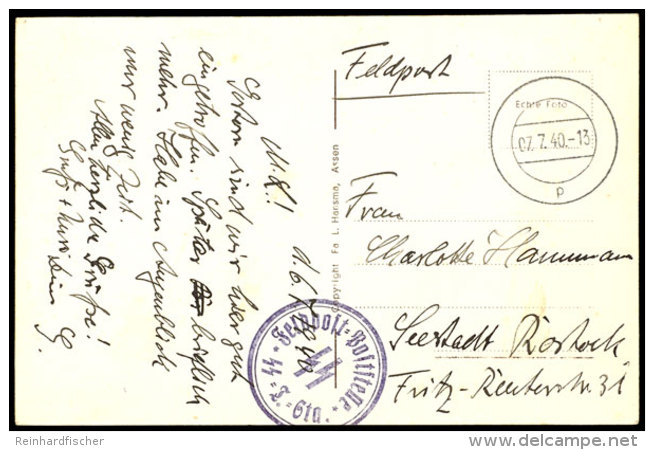 d. 6. 7. 1940
M. L.!
Gestern sind wir hier gut
eingetroffen. Später brieflich
mehr. Habe im Augenblick
nur wenig Zeit.
Allerherzliche Grüße!
Gruß + Kuss Dein
G.
Copyright Fa L. Hansma, Assen
Feldpost
Echte Foto
07.7.40.-13
p
Frau
Charlotte Hammann
Seestadt Rostock
Fritz-Reuterstr. 31
SS-Feldpost-Poststelle
SS
Reinhardfischer
delcampe.net